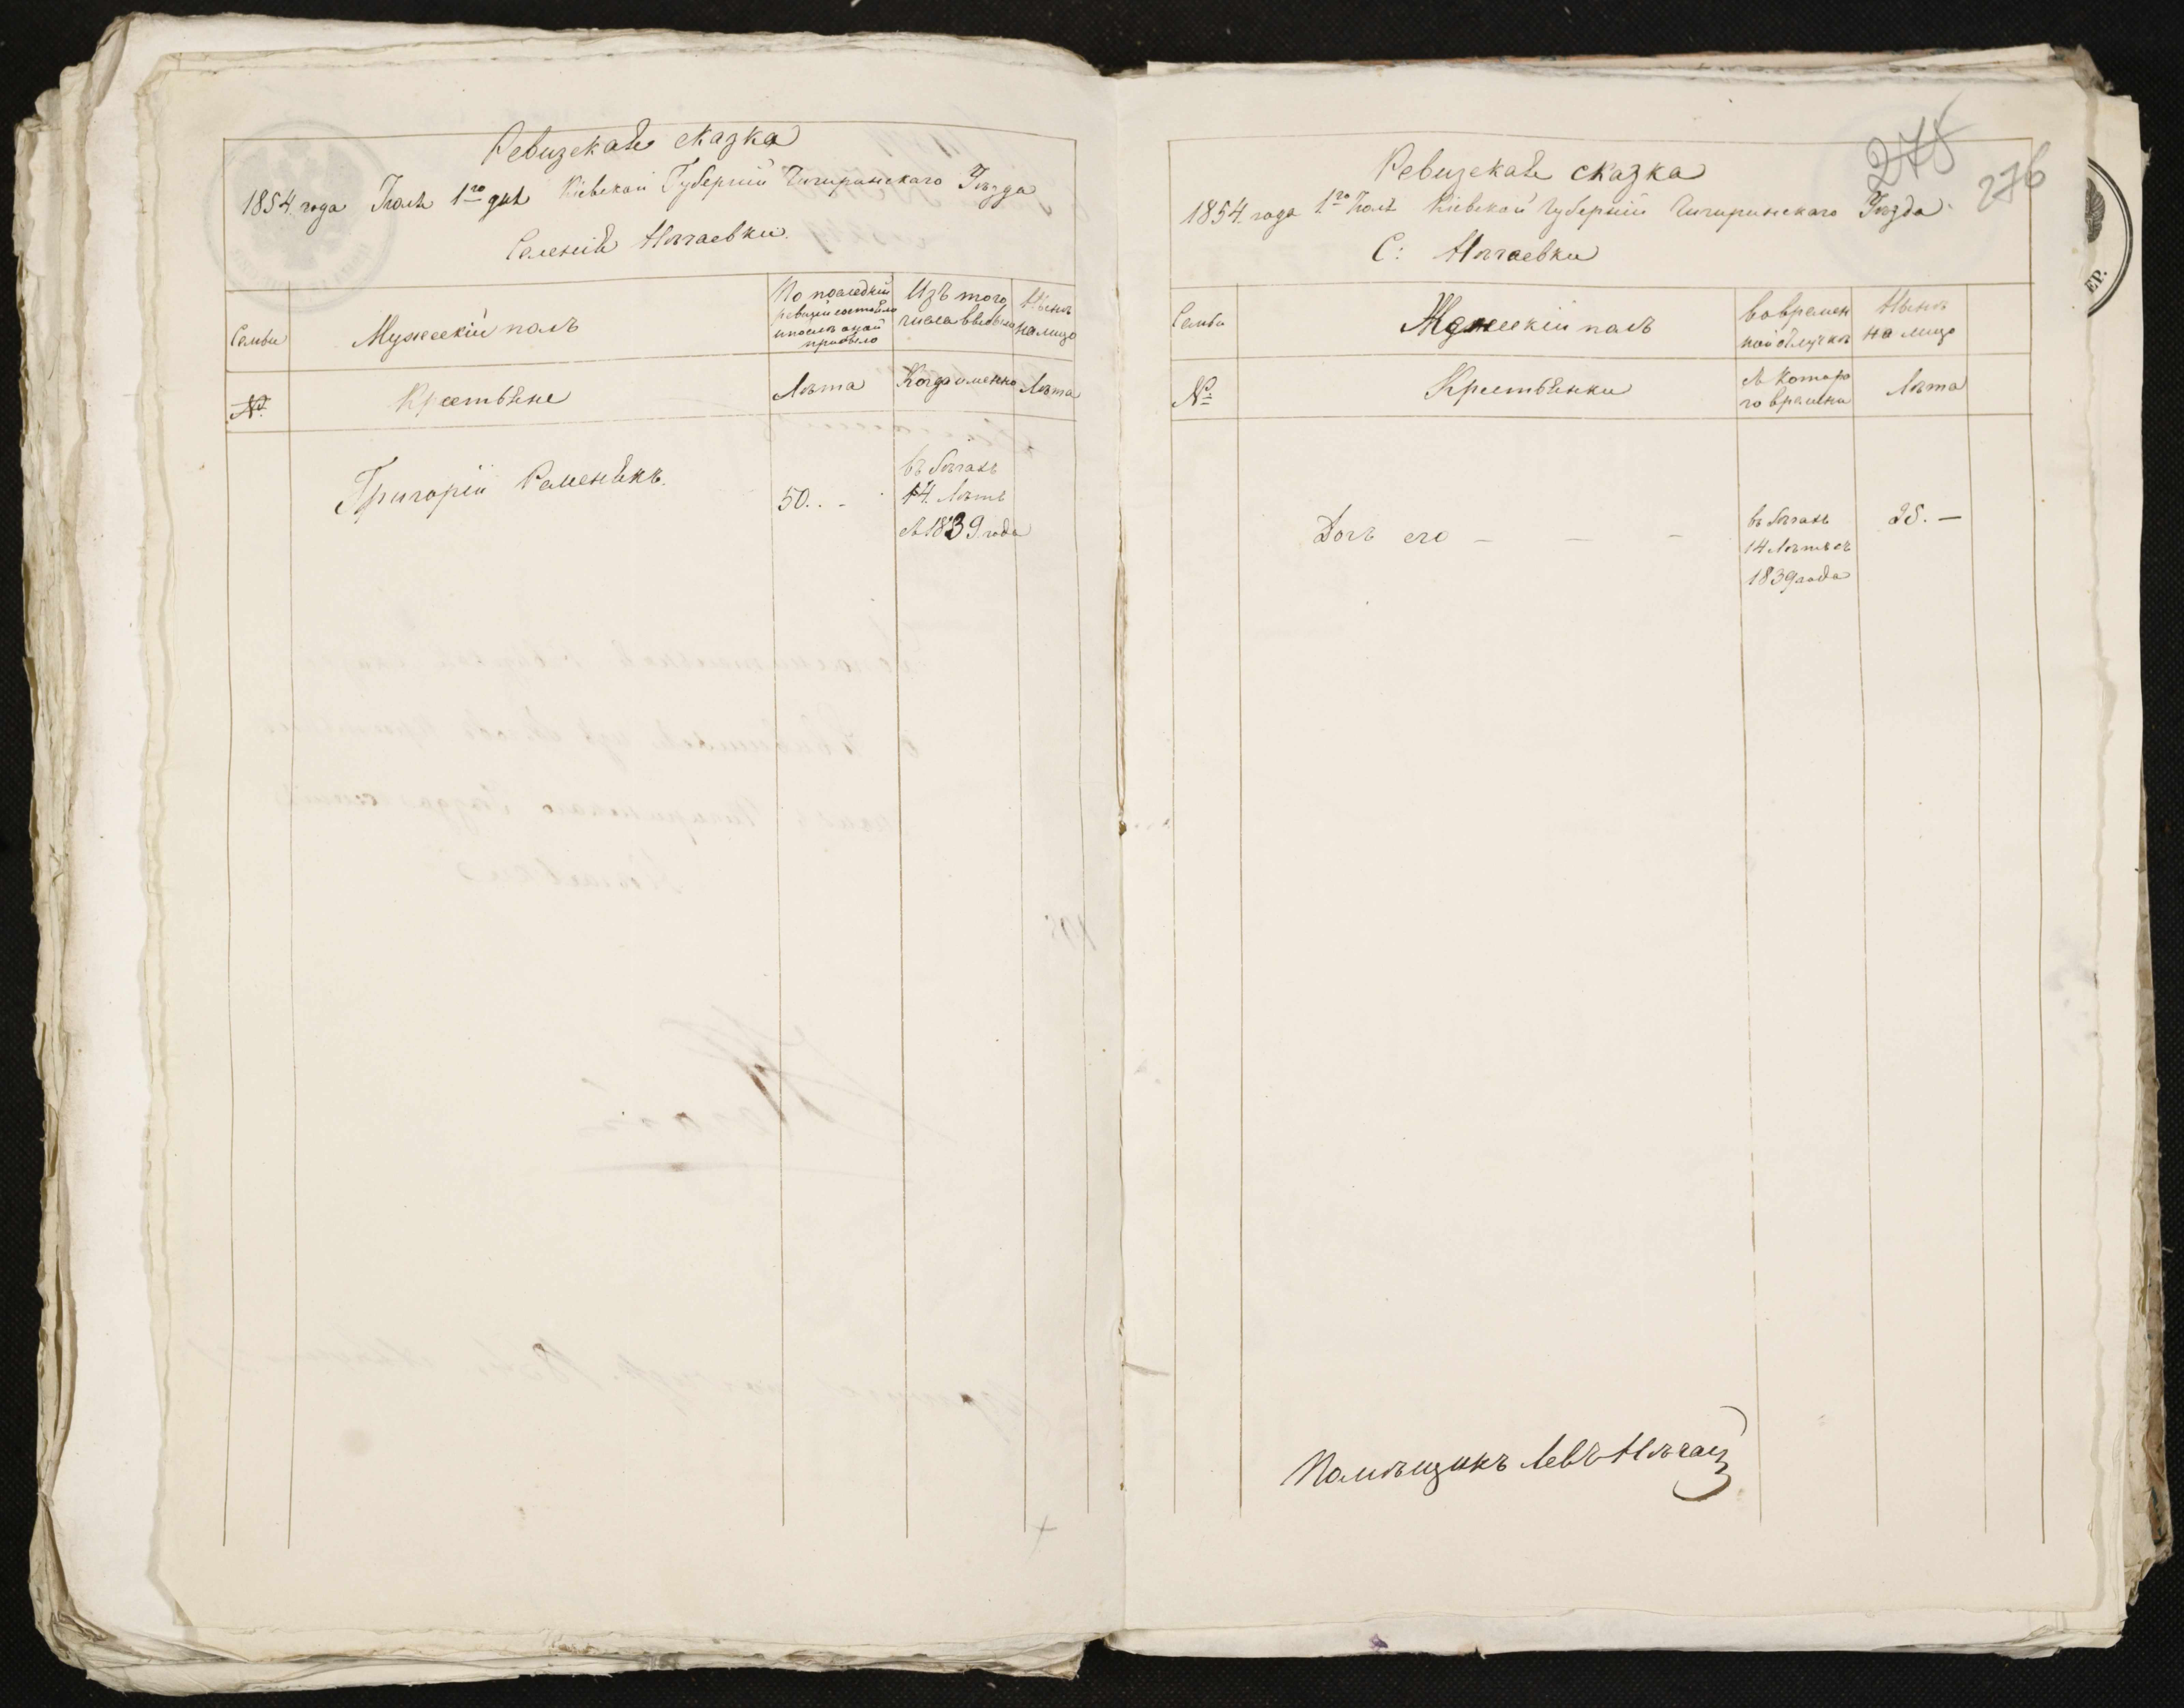 Ревизская сказка
1854. года Июля 1го дня Кіевской Губерніи Чигиринскаго Уѣзда
Селенія Нечаевки.
Семьи
Мужескій полъ
По последней
ревизіи состояло
и послѣ оной
прибыло
Изъ того
числа выбыло
Нынѣ
на лицо
№
Крестьяне
Лѣта
Когда именно
Лѣта
ГригорійРеменякъ.
50..-
въ бѣгахъ
14. Лѣтъ
съ 1839. года
275
276
Ревизская сказка
1854. года 1го Іюля Кіевской Губерніи Чигиринскаго Уѣзда.
С: Нѣчаевки
ЕР.
Семьи
Женскій полъ
Во времен
ной отлучкѣ
Нынѣ
на лицо
№
Крестьянки
съ котора
го времени
Лѣта
Дочь его - - -
въ бѣгахъ
14 Лѣтъ съ
1839 года
25. -
Помѣщикъ Левъ Нѣчай